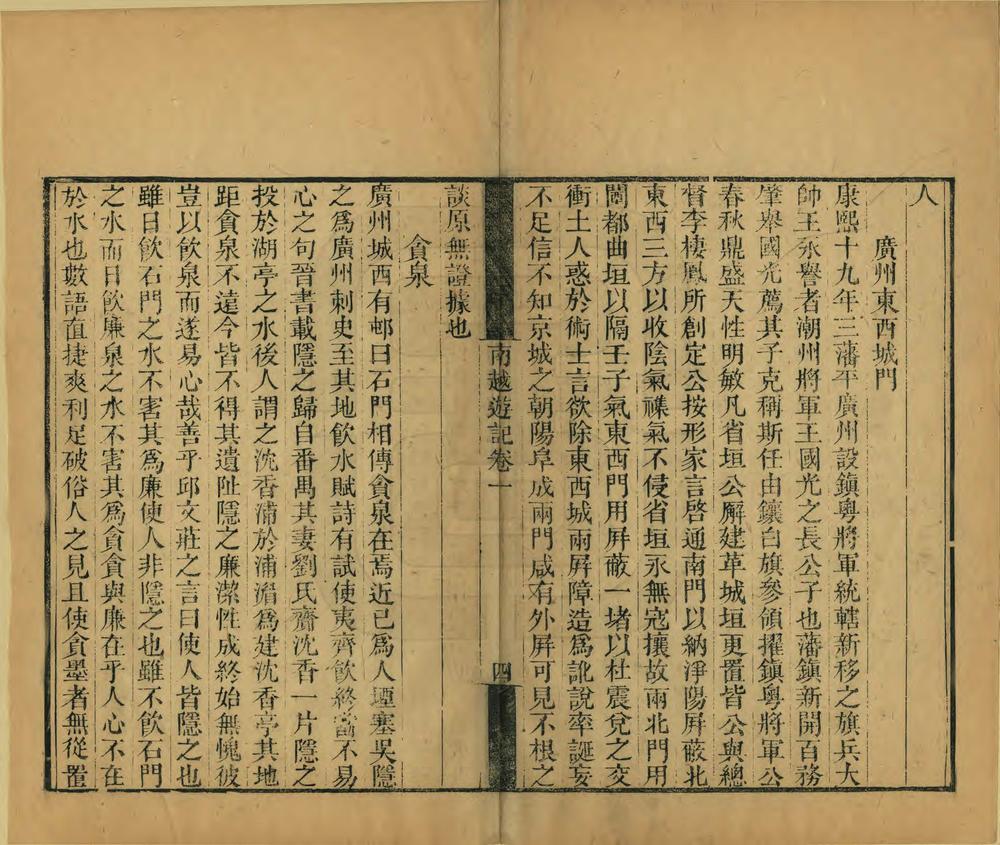 人
廣州東西城門
康熙十九年三藩平廣州設鎮粵將軍統轄新移之旗兵大
帥王永譽者潮州將軍王國光之長公子也藩鎮新開百務
肇舉國光薦其子克稱斯任由鑲白旗參領擢鎮粵將軍公
春秋鼎盛天性明敏凡省垣公廨建革城垣更置皆公與總
督李棲鳳所創定公按形家言啓通南門以納淨陽屏蔽北
東西三方以收陰氣祲氣不侵省垣永無寇攘故兩北門用
闉都曲垣以隔壬子氣東西門用屏蔽一堵以杜震兌之交
衝土人惑於術士言欲除東西城兩屏障造爲訛說率誕妄
不足信不知京城之朝陽阜成兩門咸有外屏可見不根之
南越遊記卷一
四
談原無證據也
貪泉
廣州城西有邨曰石門相傳貪泉在焉近已爲人堙塞吳隱
之爲廣州刺史至其地飲水賦詩有試使夷齊飲終當不易
心之句晉書載隱之歸自番禺其妻劉氏齎沈香一片隱之
投於湖亭之水後人謂之沈香浦於浦湄爲建沈香亭其地
距貪泉不遠今皆不得其遺阯隱之廉潔性成終始無愧彼
豈以飲泉而遂易心哉善乎邱文莊之言曰使人皆隱之也
雖日飲石門之水不害其爲廉使人非隱之也雖不飲石門
之水而日飲廉泉之水不害其爲貪貪與廉在乎人心不在
於水也數語直捷爽利足破俗人之見且使貪墨者無從置